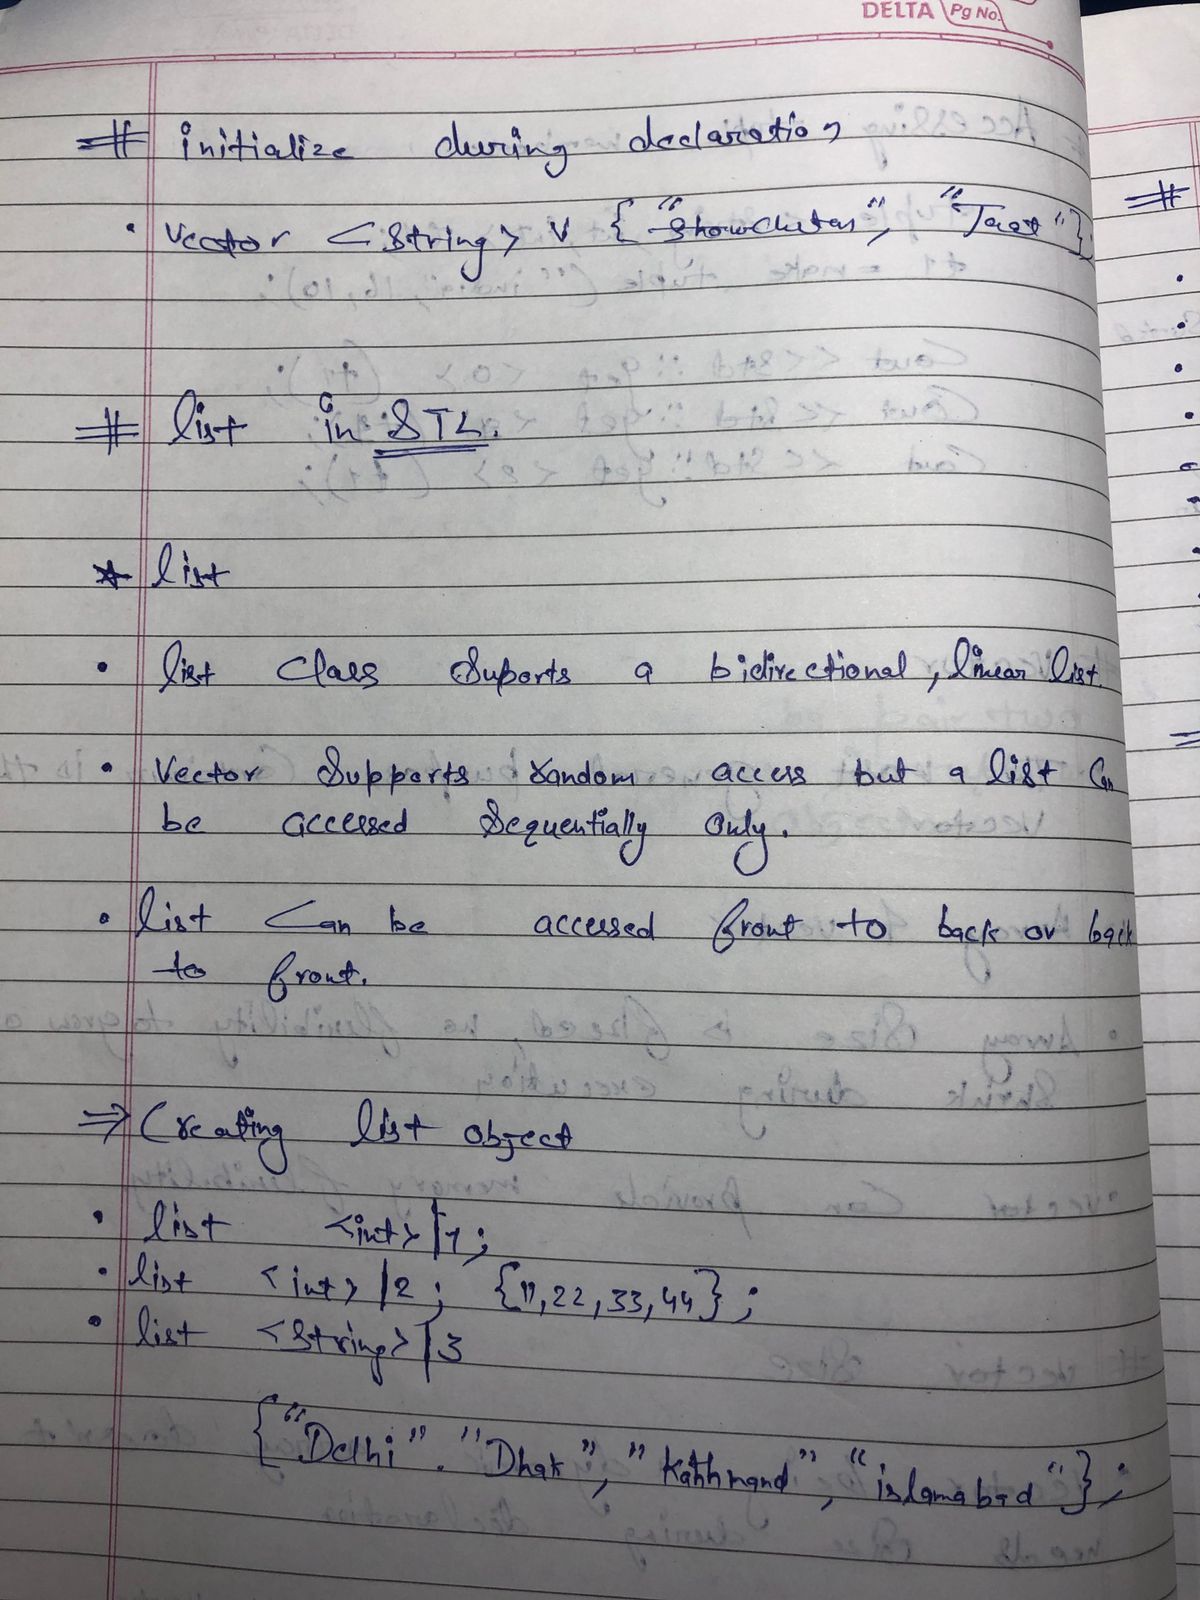 DELTA Pg No.
# initialize during declaration
• Vector <String> v { "Showchutan", "Test" };
# list in STL.
* list
• list class Suports a bidirectional, linear list.
• Vector Supports random access but a list Can
be accessed Sequentially Only.
• list Can be accessed front to back or back
to front.
⇒ Creating list object
• list <int> l1;
• list <int> l2; {11,22,33,44};
• list <String> l3
{"Delhi". "Dhak", "Kathmand", "islamabad"};